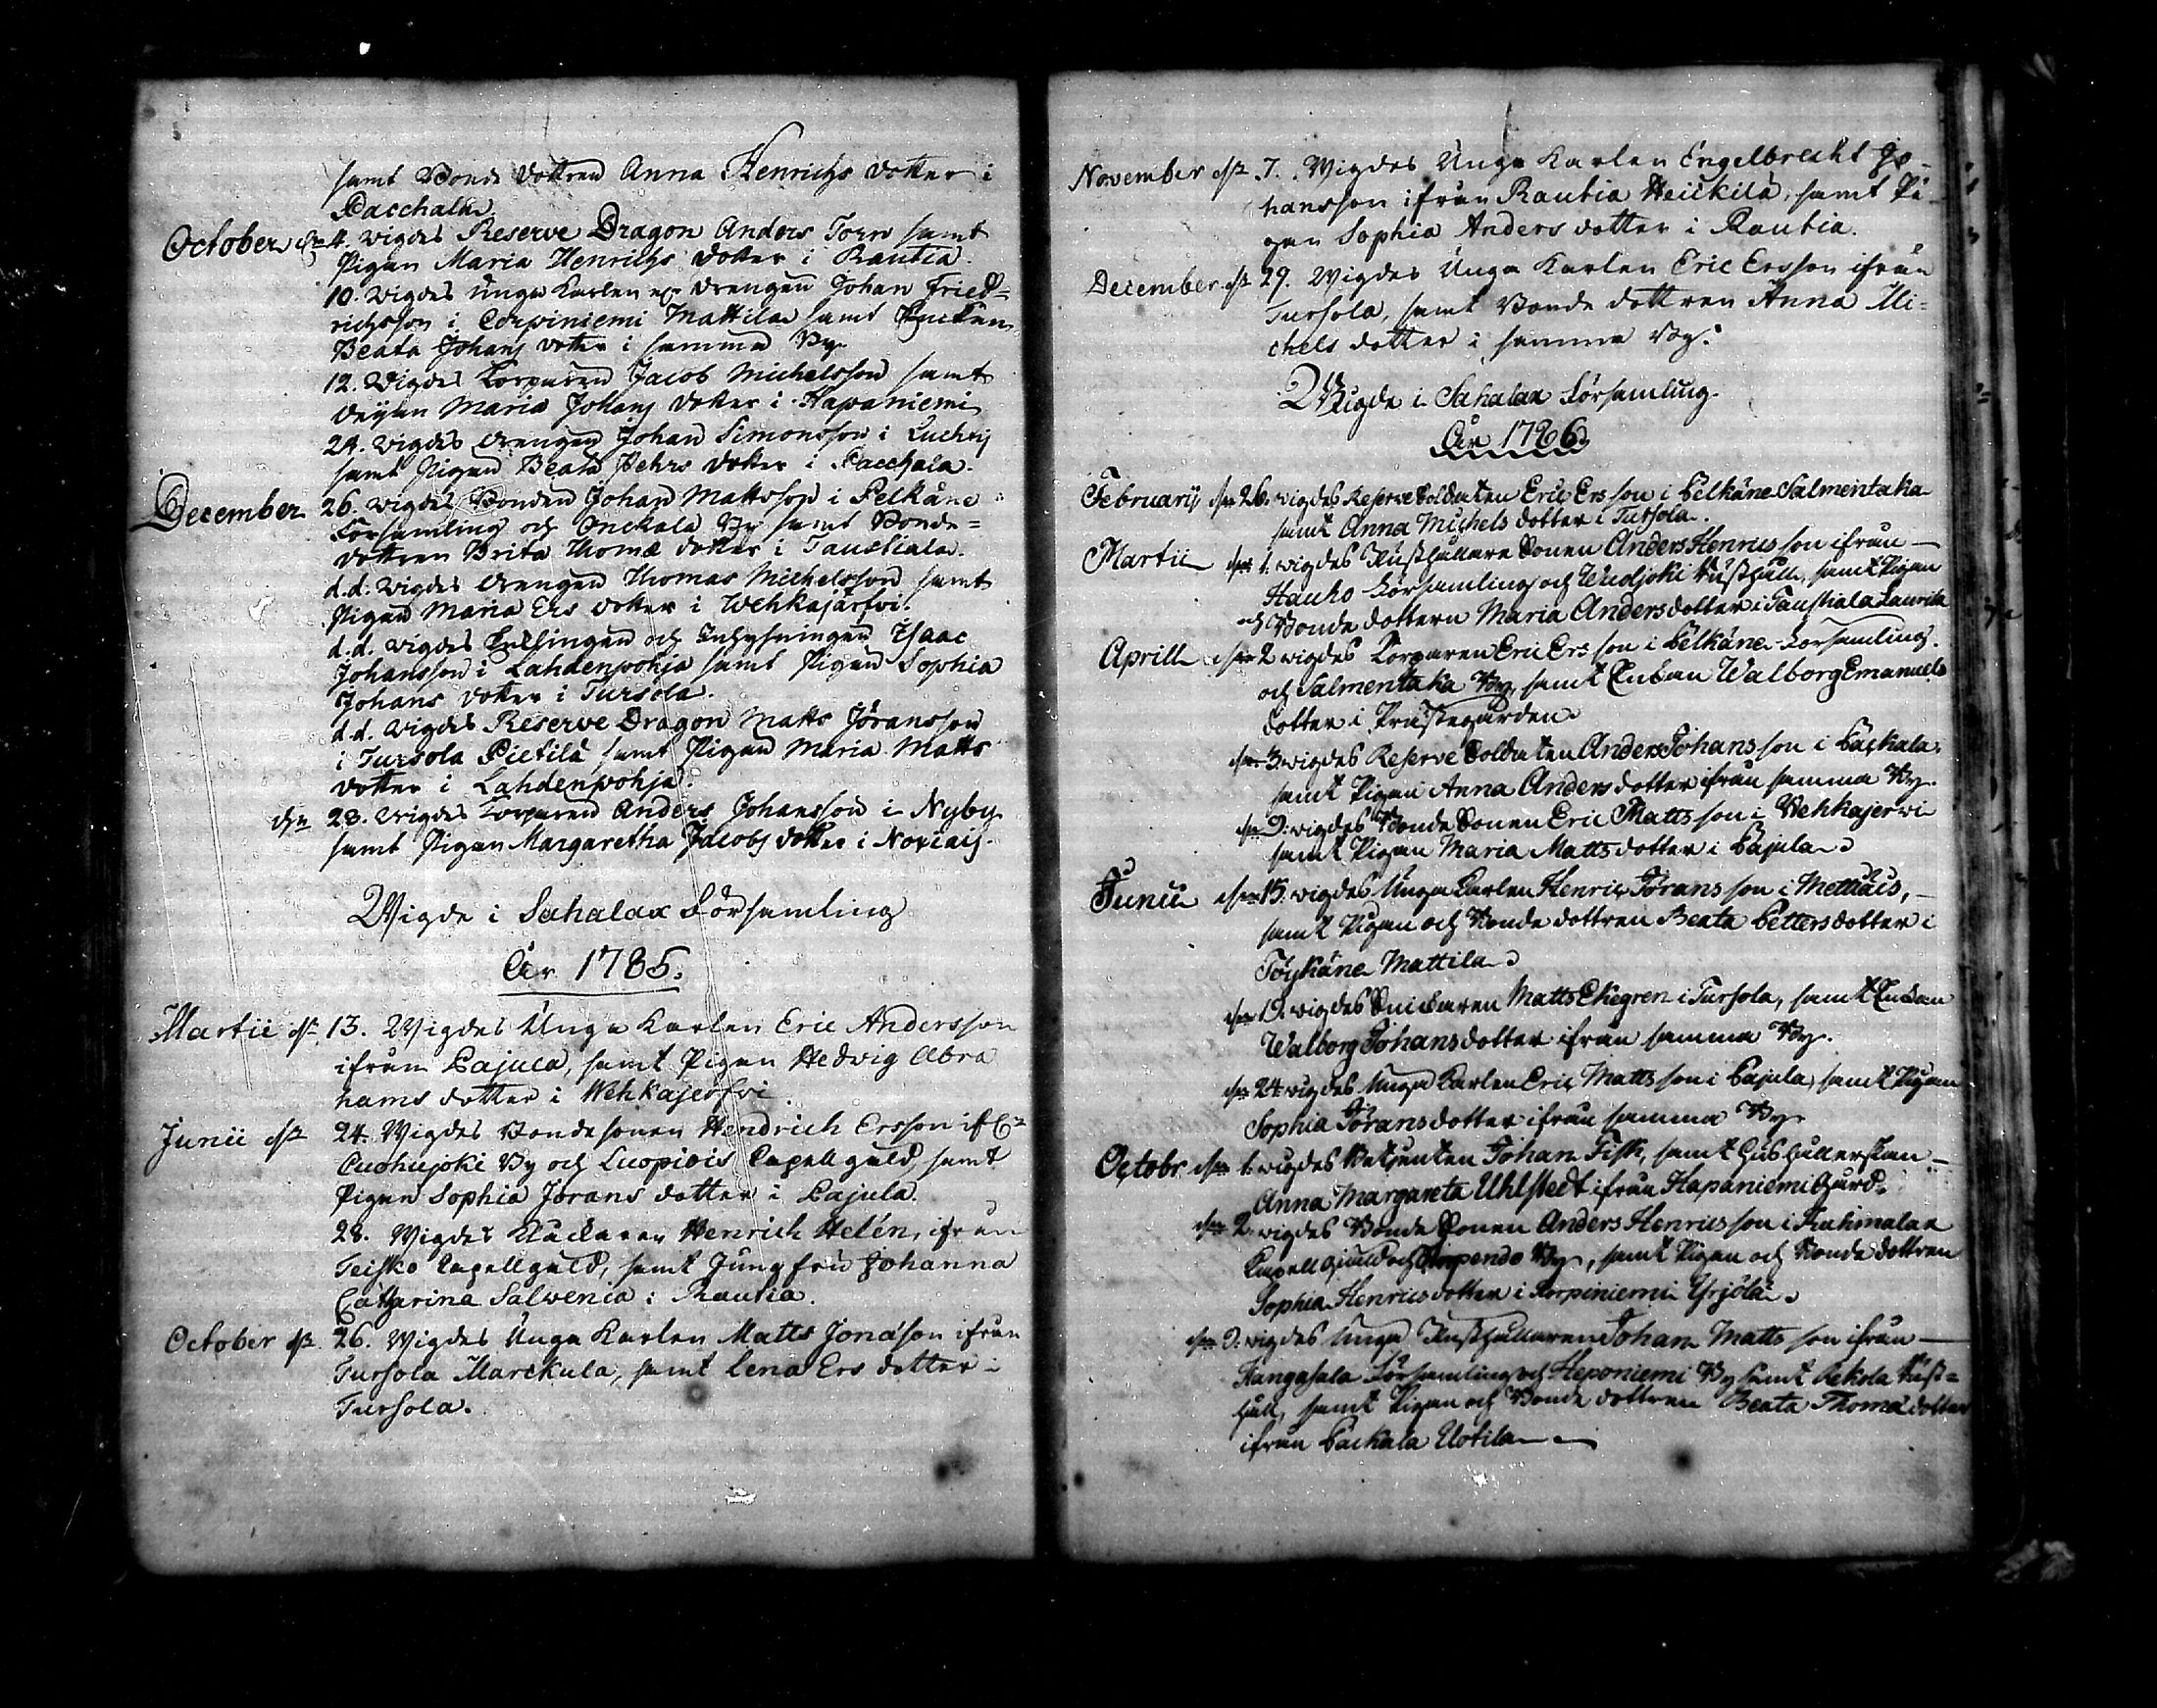 samt Bonde dottren Anna Henrichs dotter i
Pacchala
October den 4. vigdes Reserve Dragon Anders Torn samt
Pigan Maria Henrichs dotter i Rautia.
10. vigdes unga Karlen och drengen Johan Fried=
richsson i Corpiniemi Mattila samt Enkan
Beata Johans dotter i samma By.
12. vigdes Torparen Jacob Michelsson samt
Maria Johans dotter i Hapaniemi
24. vigdes drengen Johan Simonsson i
samt Pigan Beata Pehrs dotter i Pacchala.
December 26. vigdes Bonden Johan Mattsson i Pelkäne
Församling och Onckala By samt Bonde=
dottren Brita Thomæ dotter i Taustiala.
d.d. vigdes drengen Thomas Michelsson samt
Pigan Maria Ers dotter i Wehkajärfvi.
d.d. vigdes och Inhysningen Isaac
Johansson i Lahdenpohja samt Pigan Sophia
Johans dotter i Tursola.
d.d. vigdes Reserve Dragon Matts Jöransson
i Tursola Pietilä samt Pigan Maria Matts
dotter i Lahdenpohja.
den 28. vigdes Torparen Anders Johansson i Nyby
samt Pigan Margaretha Jacobs dotter i
Wigde i Sahalax Församling
År 1785.
Martii den 13. Wigdes Unga Karlen Eric Andersson
ifrån Pajula, samt Pigan Hedvig Abra
hams dotter i Wehkajerfvi
Junii den 24. Wigdes Bondesonen Hendrich Ersson
By och Luopiois Capell gäld, samt
Pigan Sophia Jörans dotter i Pajula.
28. Wigdes Henrich Helén, ifrån
Teisko Capellgäld, samt Jungfru Johanna
Catharina Salvenia i Rautia.
October den 26. Wigdes Unga Karlen Matts Jonasson ifrån
Tursola Marckula, samt Lena Ers dotter i
Tursola.
November den 7. Wigdes Unga Karlen Engelbrecht Jo-
hansson ifrån Rautia Heickilä, samt Pi-
gan Sophia Anders dotter i Rautia.
December den 29. Wigdes Unga Karlen Eric Ersson ifrån
Tursola, samt Bonde dottren Anna Mi=
chels dotter i samma By.
Wigde i Sahalax Församling.
År 1786.
Februarij den 26. vigdes Reserve Soldaten Eric Ersson i Pelkäne Salmentaka
samt Anna Michels dotter i Tursola.
Martii den 1. vigdes Rusthållare Sonen Anders Henricsson ifrån
Hauho Församling och Rusthåll, samt Pigan
och Bonde dottern Maria Anders dotter i Taustiala Laurila
Aprill den 2 vigdes Torparen Eric Ersson i Pelkäne Församling
och Salmentaka By, samt Enkan Walborg Emanuels
dotter i Prästegården.
den 3. vigdes Reserve Soldaten Anders Johansson i Packala
samt Pigan Anna Anders dotter ifrån samma By.
den 9. vigdes Bonde Sonen Eric Mattsson i Wehkajerwi
samt Pigan Maria Matts dotter i Pajula
Junii den 15. vigdes Unga Karlen Henric Jöransson i
samt Pigan och Bonde dottren Beata Petters dotter i
Töykäne Mattila
den 19. vigdes Snickaren Matts Ekegren i Tursola, samt Enkan
Walborg Johans dotter ifrån samma By.
den 24 vigdes Unga Karlen Eric Mattsson i Pajula, samt Pigan
Sophia Jörans dotter ifrån samma By
Octobr den 1. vigdes Betjenten Johan Fisk, samt Hushållerskan
Anna Margareta Uhlstedt ifrån Hapaniemi Gård.
den 2. vigdes Bonde Sonen Anders Henricsson i Kuhmalax
Capell Gäld och By, samt Pigan och Bonde dottren
Sophia Henrics dotter i Korpiniemi Yrjölä
den 9. vigdes Unga Rusthållaren Johan Mattsson ifrån
Kangasala Församling och Heponiemi By samt Pekola Rust=
håll, samt Pigan och Bonde dottren Beata Thomæ dotter
ifrån Packala Uotila